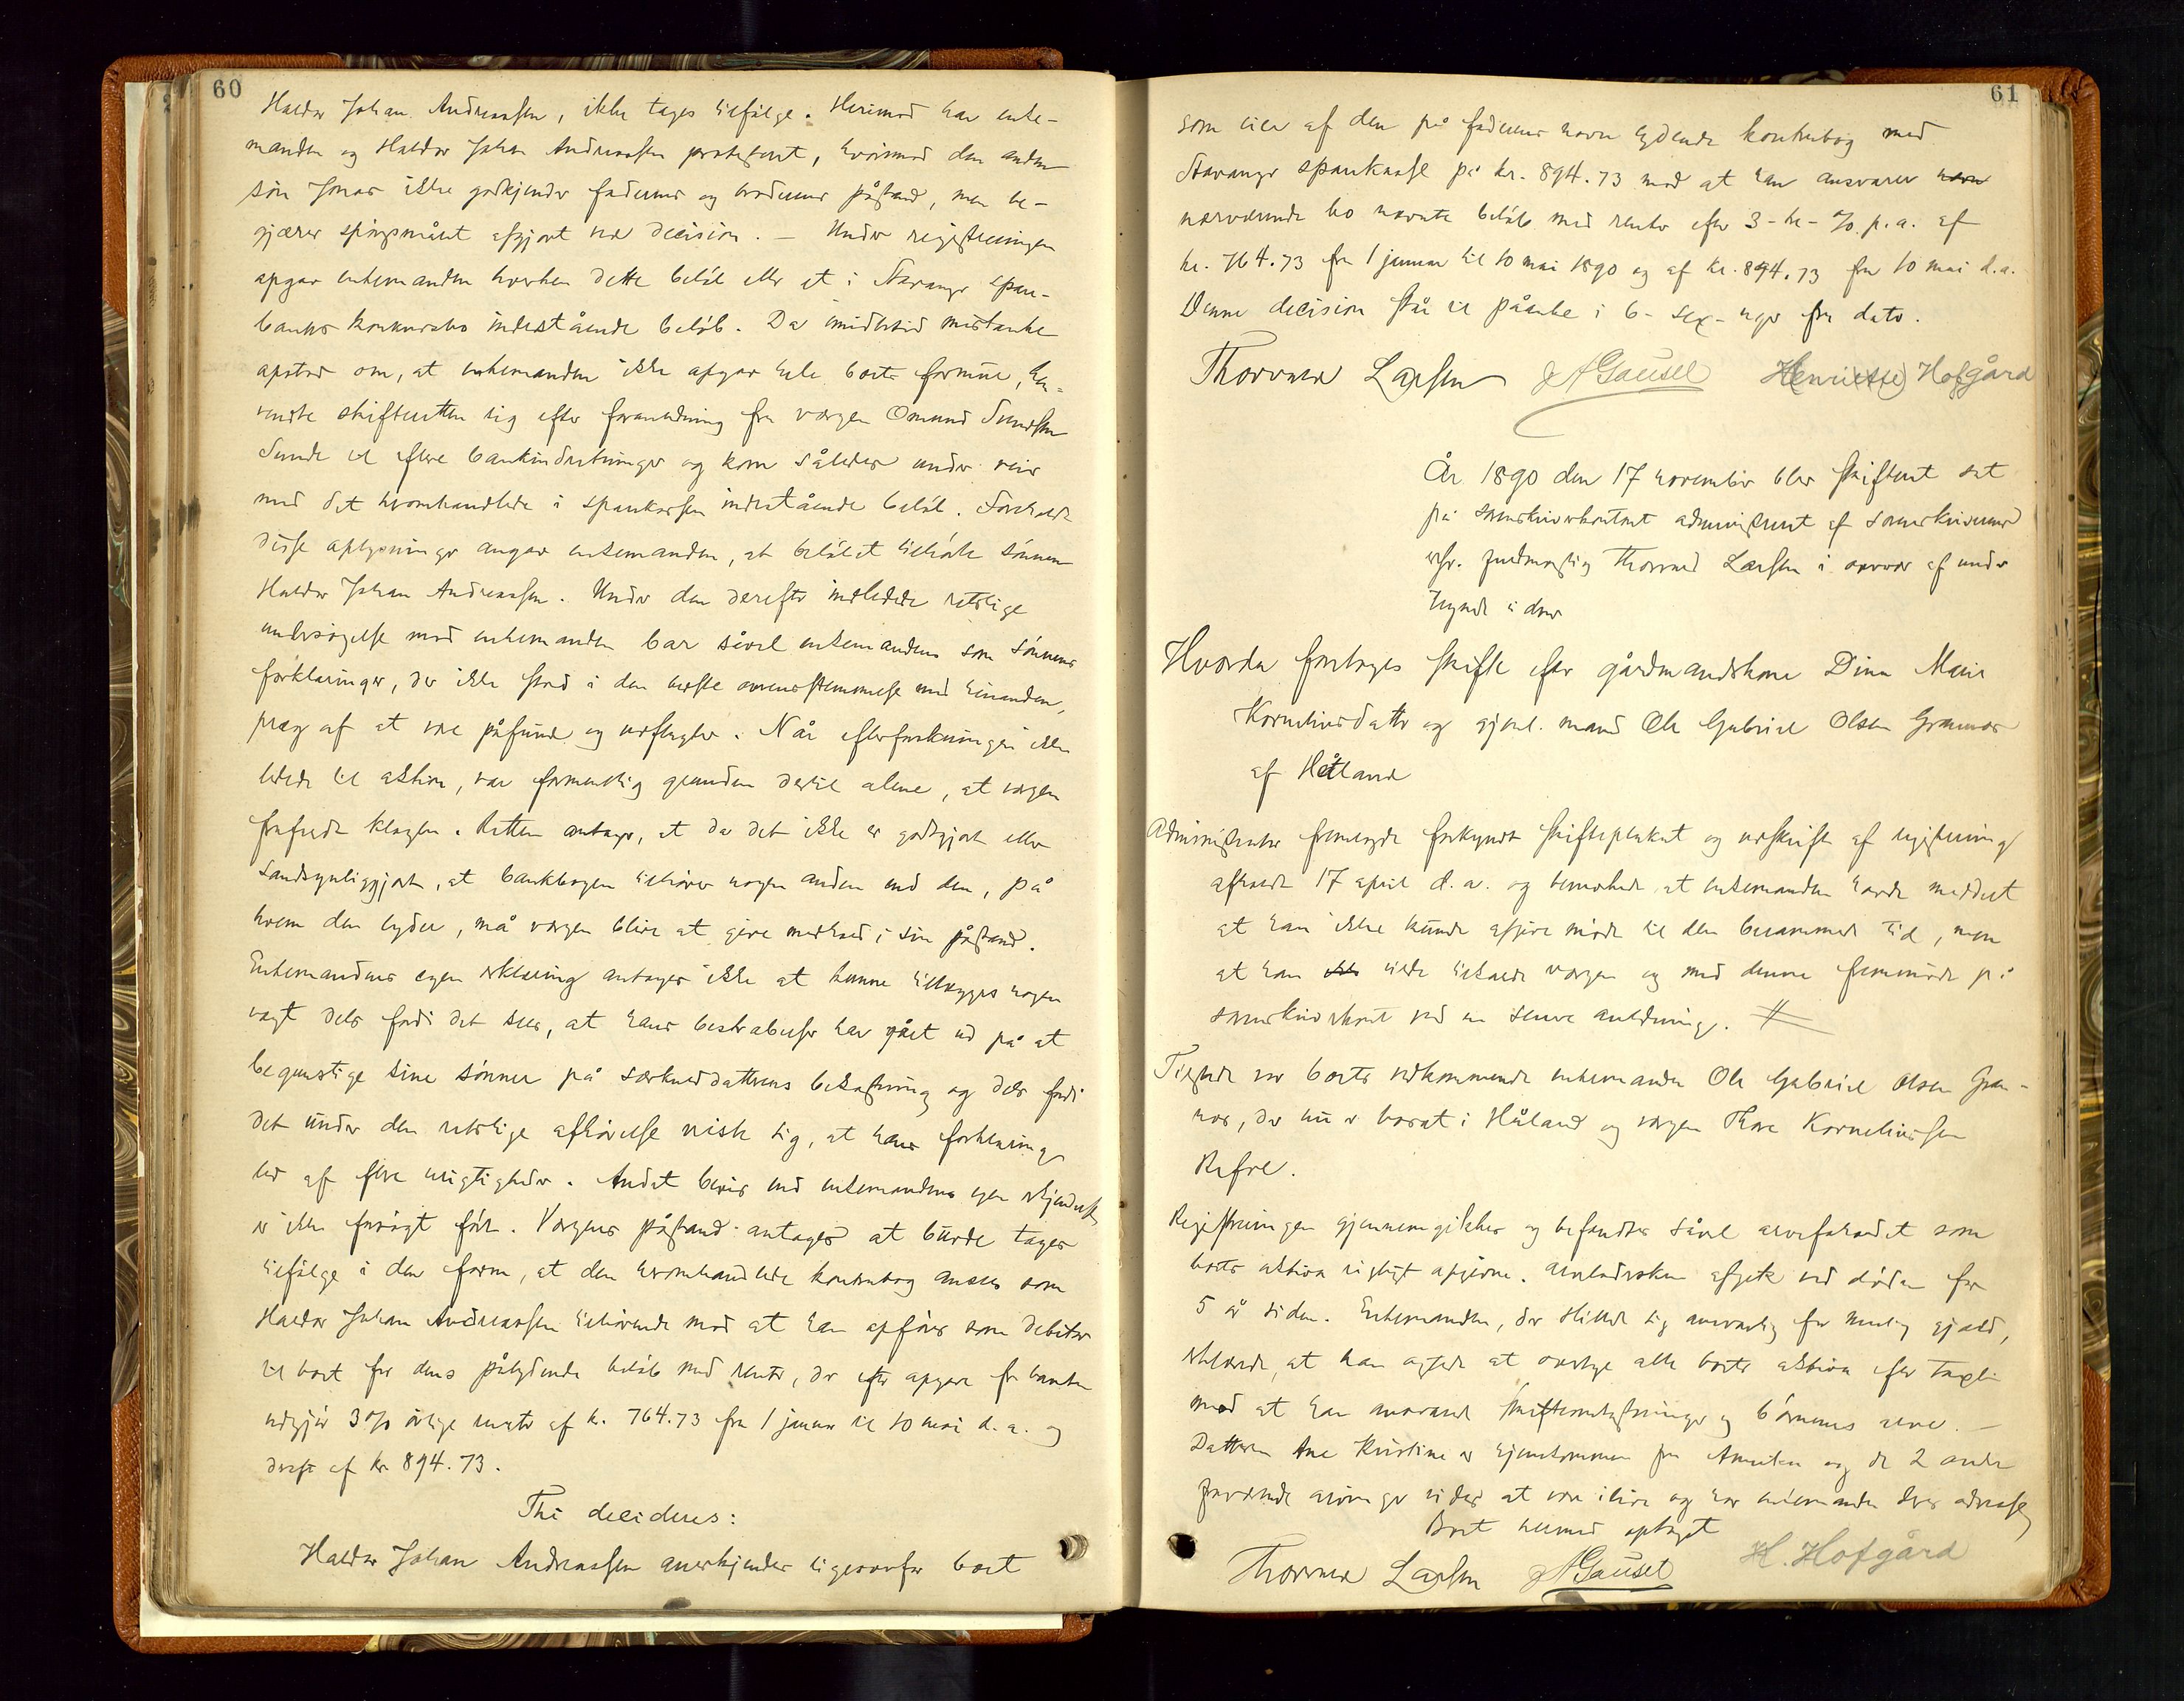 60
Haldor Johan Andreassen, ikke tages tilfølge. Herimod har enke-
manden og Haldor Johan Andreassen protesteret, hvorimod den anden
søn Jonas ikke godkjender faderens og broderens påstand, men be-
gjærer spørgsmålet afgjort ved decision. — Under registreringen
opgav enkemanden hverken dette beløb eller et i Stavanger spare-
banks konkursbo indestående beløb. Da imidlertid mistanke
opstod om, at enkemanden ikke opgav hele boets formue, hen-
vendte skifteretten sig efter foranledning fra værgen Omund Svendsen
Sunde til flere bankindretninger og kom således under veir
med det heromhandlede i sparekassen indestående beløb. Foreholdt
disse oplysninger angav enkemanden, at beløbet tilhørte sønnen
Haldor Johan Andreassen. Under den derefter indledede retslige
undersøgelse mod enkemanden bar såvel enkemandens som sønnens
forklaringer, der ikke stod i den bedste overensstemmelse med hinanden,
præg af at være påfund og udflugter. Når efterforskningen ikke
ledede til aktion, var formentlig grunden dertil alene, at værgen
frafaldt klagen. Retten antager, at da det ikke er godtgjort eller
sandsynliggjort, at bankbogen tilhører nogen anden end den, på
hvem den lyder, må værgen blive at give medhold i sin påstand.
Enkemandens egen erklæring antages ikke at kunne tillægges nogen
vægt dels fordi det sees, at hans bestræbelser har gået ud på at
begunstige sine sønner på særkulddatterens bekostning og dels fordi
det under den retslige afhørelse viste sig, at hans forklaring
led af flere urigtigheder. Andet bevis end enkemandens egen erkjendelse
er ikke forsøgt ført. Værgens påstand antages at burde tages
tilfølge i den form, at den heromhandlede kontrabog ansees som
Haldor Johan Andreassen tilhørende mod at han opføres som debitor
til boet for dens pålydende beløb med renter, der efter opgave fra banken
udgjør 3% årlige renter af kr. 764.73 fra 1 januar til 10 mai d. a. og
derefter af kr. 894.73.
Thi decideres:
Haldor Johan Andreassen anerkjendes ligeoverfor boet
61
som eier af den på faderens navn lydende kontrabog med
Stavanger sparekasse på kr. 894.73 mod at han ansvarer
nærværende bo nævnte beløb med renter efter 3 - tre - % p. a. af
kr. 764.73 fra 1 januar til 10 mai 1890 og af kr. 894.73 fra 10 mai d. a.
Denne decision står til påanke i 6 - sex - uger fra dato.
Thorvald Larsen A Gausel Henriette Hofgård
År 1890 den 17 november blev skifteret sat
på sorenskriverkontoret administreret af sorenskriverens
edsv. fuldmægtig Thorvald Larsen i overvær af under
tegnede vidner
Hvorda foretoges skifte efter gårdmandskone Dina Marie
Kornelius datter og gjenl. mand Ole Gabriel Olsen Grannes
af Håland
Administrator fremlagde forkyndt skifteplakat og udskrift af registrering
afholdt 17 april d. a. og bemærkede, at enkemanden havde meddelt
at han ikke kunde afgive møde til den berammede tid, men
at han vilde tilkalde værgen og med denne fremmøde på
sorenskriverkont ved en senere anledning.
Tilstede var boets vedkommende enkemanden Ole Gabriel Olsen Gran-
nes, der nu er bosat i Håland og værgen Thore Korneliussen
Refve.
Registreringen gjennemgikkes og befandtes såvel arveforholdet som
boets aktiva rigtigt opgivne. Arveladersken afgik ved døden for
5 år siden. Enkemanden, der stilled sig ansvarlig for mulig gjæld,
erklærede, at han agtede at overtage alle boets aktiva efter taxt
mod at han ansvared skifteomkostninger og børnenes arve. —
Datteren Ane Kristine er hjemkommen fra Amerika og de 2 andre
fraværende arvinger vides at være ilive og har enkemanden deres adresse
Boet hermed optaget
Thorvald Larsen A Gausel H. Hofgård